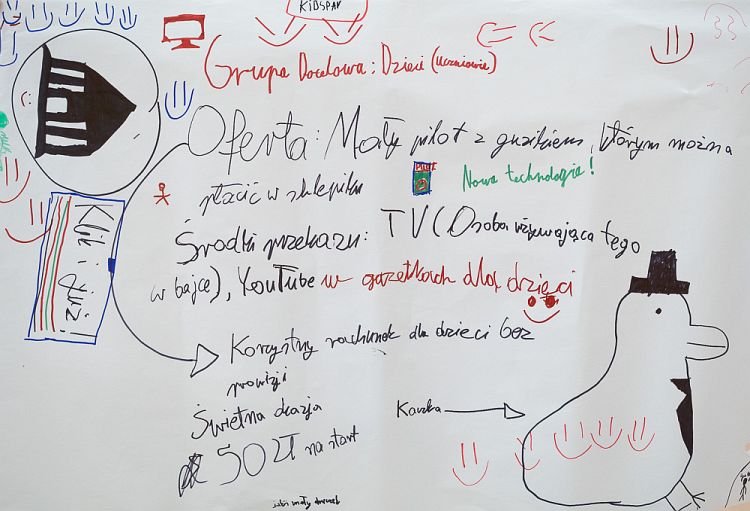 KIDSPAY
Grupa Docelowa: Dzieci (uczniowie)
Oferta: Mały pilot z guzikiem, którym można
płacić w sklepiku
PILOT
Nowa technologia!
Środki przekazu: TV (Osoba używająca tego
w bajce), YouTube w gazetkach dla dzieci
Klik i już!
Korzystny rachunek dla dzieci bez
prowizji
Świetna okazja
50 ZŁ na start
Kaczka